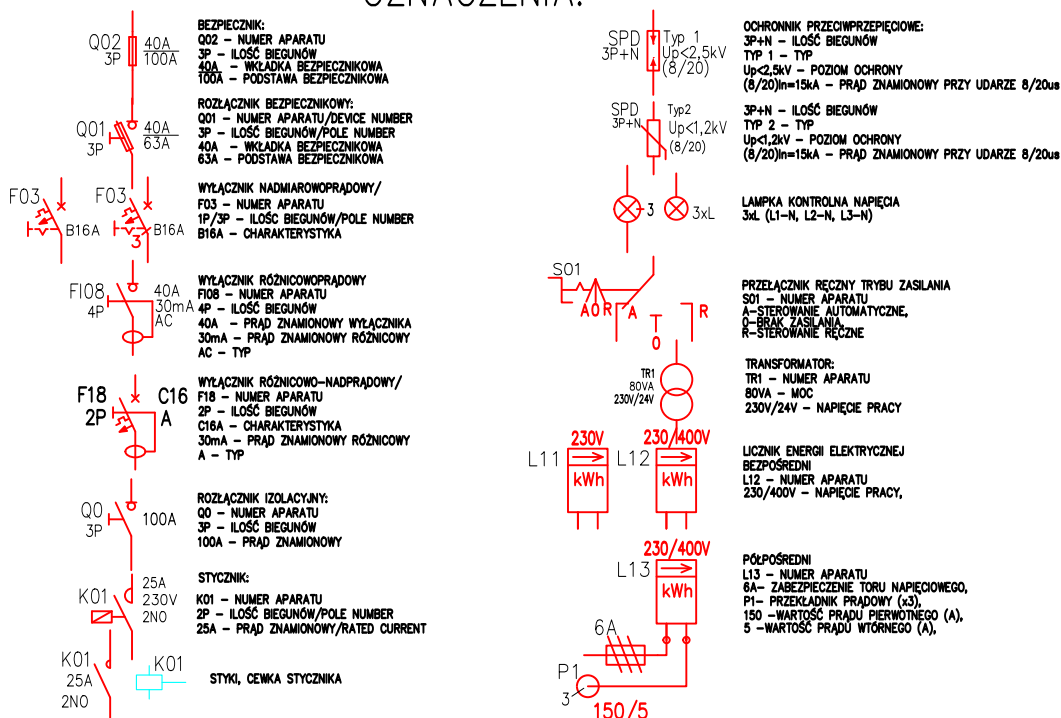 OZNACZENIA:
Q02
3P
40A
100A
BEZPIECZNIK:
Q02 - NUMER APARATU
3P - ILOŚĆ BIEGUNÓW
40A - WKŁADKA BEZPIECZNIKOWA
100A - PODSTAWA BEZPIECZNIKOWA
Q01
3P
40A
63A
ROZŁĄCZNIK BEZPIECZNIKOWY:
Q01 - NUMER APARATU/DEVICE NUMBER
3P - ILOŚĆ BIEGUNÓW/POLE NUMBER
40A - WKŁADKA BEZPIECZNIKOWA
63A - PODSTAWA BEZPIECZNIKOWA
F03
B16A
F03
3
B16A
WYŁĄCZNIK NADMIAROWOPRĄDOWY/
F03 - NUMER APARATU
1P/3P - ILOŚĆ BIEGUNÓW/POLE NUMBER
B16A - CHARAKTERYSTYKA
FI08
4P
40A
30mA
AC
WYŁĄCZNIK RÓŻNICOWOPRĄDOWY
FI08 - NUMER APARATU
4P - ILOŚĆ BIEGUNÓW
40A - PRĄD ZNAMIONOWY WYŁĄCZNIKA
30mA - PRĄD ZNAMIONOWY RÓŻNICOWY
AC - TYP
F18
2P
C16
A
WYŁĄCZNIK RÓŻNICOWO-NADPRĄDOWY/
F18 - NUMER APARATU
2P - ILOŚĆ BIEGUNÓW
C16A - CHARAKTERYSTYKA
30mA - PRĄD ZNAMIONOWY RÓŻNICOWY
A - TYP
Q0
3P
100A
ROZŁĄCZNIK IZOLACYJNY:
Q0 - NUMER APARATU
3P - ILOŚĆ BIEGUNÓW
100A - PRĄD ZNAMIONOWY
K01
25A
230V
2NO
STYCZNIK:
K01 - NUMER APARATU
2P - ILOŚĆ BIEGUNÓW/POLE NUMBER
25A - PRĄD ZNAMIONOWY/RATED CURRENT
K01
25A
2NO
K01
STYKI, CEWKA STYCZNIKA
SPD
3P+N
Typ 1
Up<2,5kV
(8/20)
OCHRONNIK PRZECIWPRZEPIĘCIOWE:
3P+N - ILOŚĆ BIEGUNÓW
TYP 1 - TYP
Up<2,5kV - POZIOM OCHRONY
(8/20)In=15kA - PRĄD ZNAMIONOWY PRZY UDARZE 8/20us
SPD
3P+N
Typ2
Up<1,2kV
(8/20)
3P+N - ILOŚĆ BIEGUNÓW
TYP 2 - TYP
Up<1,2kV - POZIOM OCHRONY
(8/20)In=15kA - PRĄD ZNAMIONOWY PRZY UDARZE 8/20us
3
3xL
LAMPKA KONTROLNA NAPIĘCIA
3xL (L1-N, L2-N, L3-N)
S01
A O R
A
0
R
PRZEŁĄCZNIK RĘCZNY TRYBU ZASILANIA
S01 - NUMER APARATU
A-STEROWANIE AUTOMATYCZNE,
O-BRAK ZASILANIA,
R-STEROWANIE RĘCZNE
TR1
80VA
230V/24V
TRANSFORMATOR:
TR1 - NUMER APARATU
80VA - MOC
230V/24V - NAPIĘCIE PRACY
L11
230V
kWh
L12
230/400V
kWh
LICZNIK ENERGII ELEKTRYCZNEJ
BEZPOŚREDNI
L12 - NUMER APARATU
230/400V - NAPIĘCIE PRACY,
L13
230/400V
kWh
6A
P1
3
150/5
PÓŁPOŚREDNI
L13 - NUMER APARATU
6A- ZABEZPIECZENIE TORU NAPIĘCIOWEGO,
P1- PRZEKŁADNIK PRĄDOWY (x3),
150 -WARTOŚĆ PRĄDU PIERWOTNEGO (A),
5 -WARTOŚĆ PRĄDU WTÓRNEGO (A),